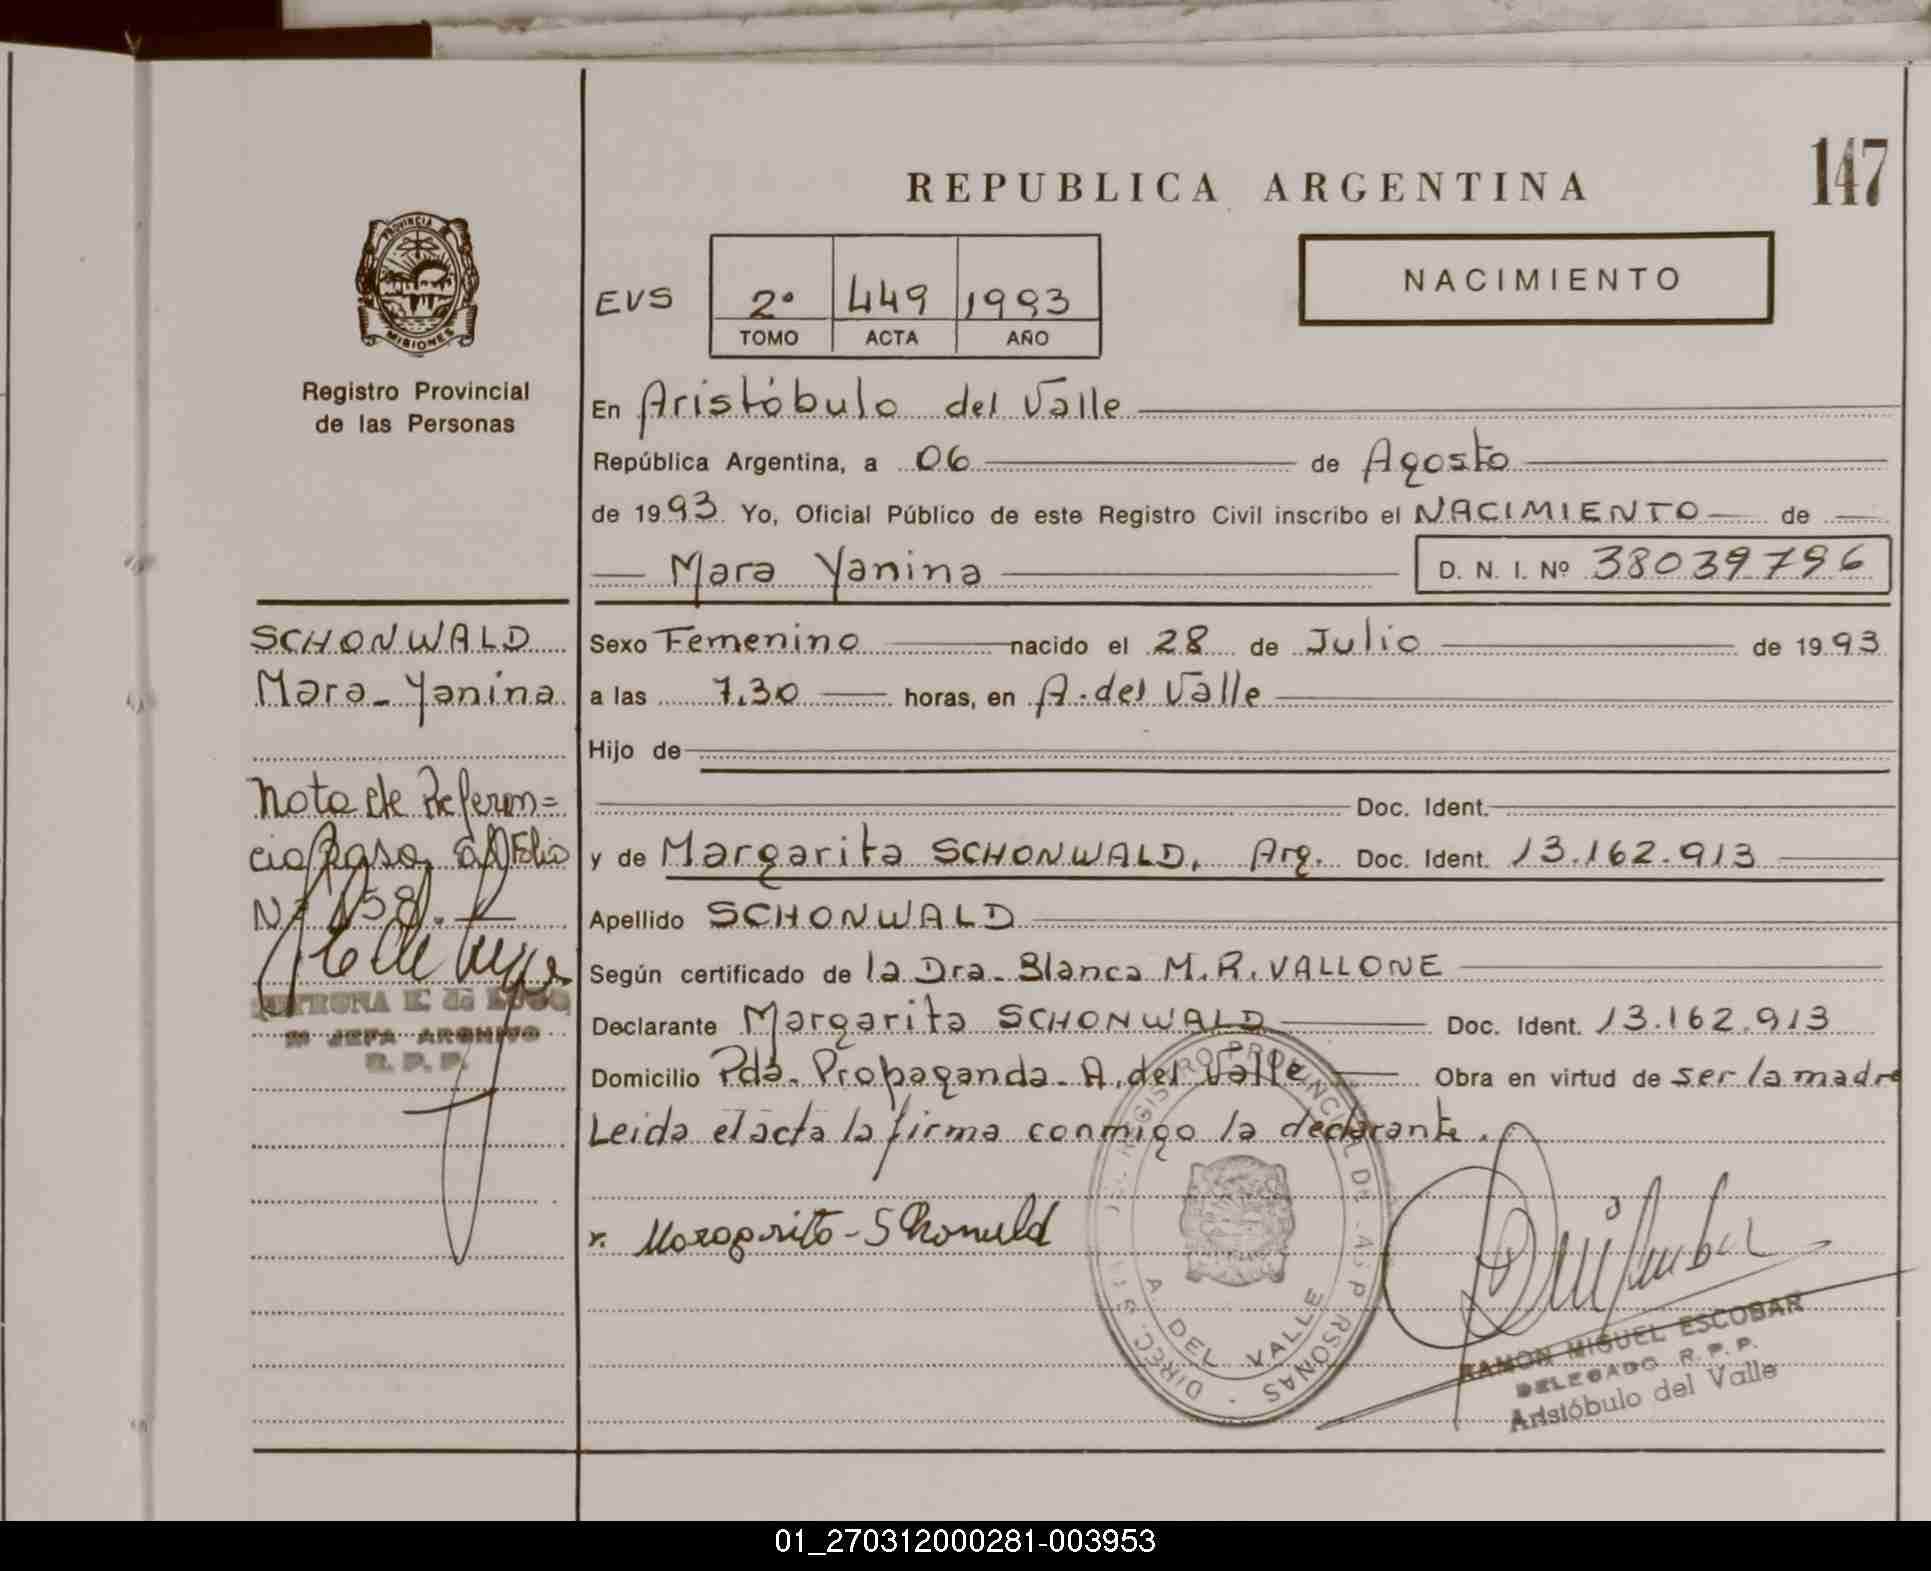 147
REPUBLICA ARGENTINA
PROVINCIA DE
MISIONES
Registro Provincial
de las Personas
NACIMIENTO
EVS
2º 449 1993
TOMO ACTA AÑO
En Aristóbulo del Valle
República Argentina, a 06 de Agosto
de 1993 Yo, Oficial Público de este Registro Civil inscribo el NACIMIENTO de
Mara Yanina
D. N. I. Nº 38039796
SCHONWALD
Mara-Yanina
Nota de Referen=
cia Pasa al Folio
Nº 158.
JEFA ARCHIVO
R. P. P.
Sexo Femenino nacido el 28 de Julio de 1993
a las 7.30 horas, en A. del Valle
Hijo de
Doc. Ident.
y de Margarita SCHONWALD, Arg. Doc. Ident. 13.162.913
Apellido SCHONWALD
Según certificado de la Dra. Blanca M.R. VALLONE
Declarante Margarita SCHONWALD Doc. Ident. 13.162.913
Domicilio Pda. Propaganda. A. del Valle Obra en virtud de ser la madre
Leida el acta la firma conmigo la declarante.
Margarita-Schonwald
DIREC. GRAL. REGISTRO PROVINCIAL DE LAS PERSONAS
A. DEL VALLE
RAMON MIGUEL ESCOBAR
DELEGADO R. P. P.
Aristóbulo del Valle
01_270312000281-003953